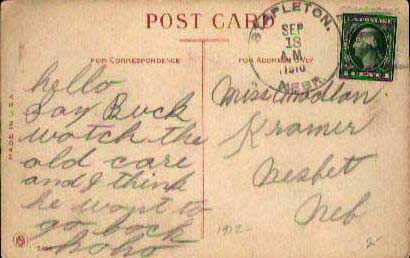 POST CARD
FOR CORRESPONDENCE
FOR ADDRESS ONLY
STAPLETON,
SEP
13
A.M.
NEBR.
U.S. POSTAGE
MADE IN U.S.A.
hello
Say Buck
watch the
old care
and I think
he want to
go back
hoho
Miss
Kramer
Nesbet
Neb
1912-
2-